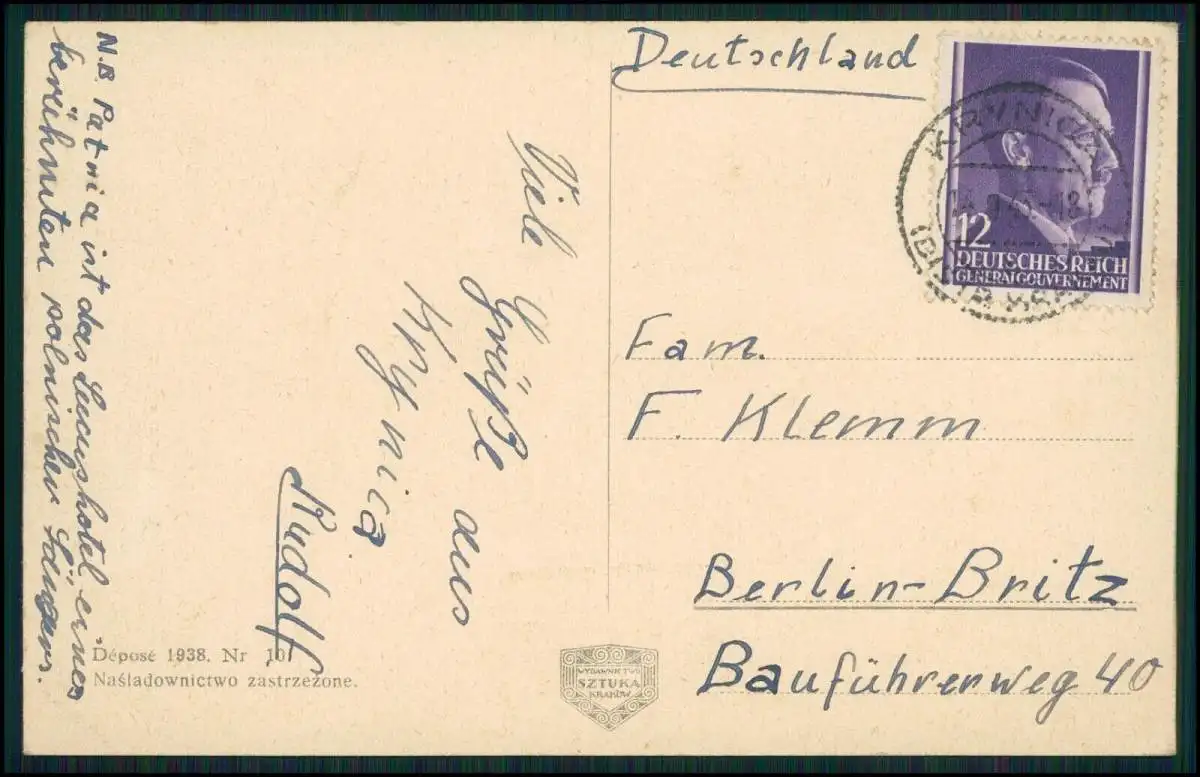 N.B. Patria ist das Luxushotel eines
berühmten polnischen Sängers.
Viele
Grüße aus
Krynica
Rudolf
Déposé 1938. Nr 10
Naśladownictwo zastrzeżone.
WYDAWNICTWO
SZTUKA
KRAKÓW
Deutschland
KRYNICA
12
DEUTSCHES REICH
GENERALGOUVERNEMENT
Fam.
F. Klemm
Berlin-Britz
Bauführerweg 40